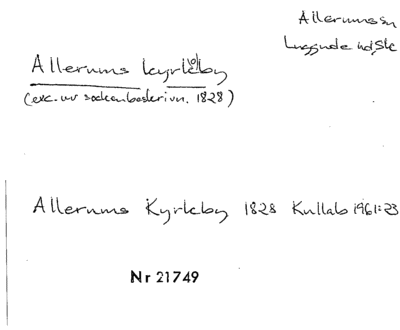 Allerums sn
Luggude hd, Sk
Allerums kyrkby
(exc. ur sockenbeskrivn. 1828)
Allerums Kyrkby 1828 Kullab 1961:23
Nr 21749